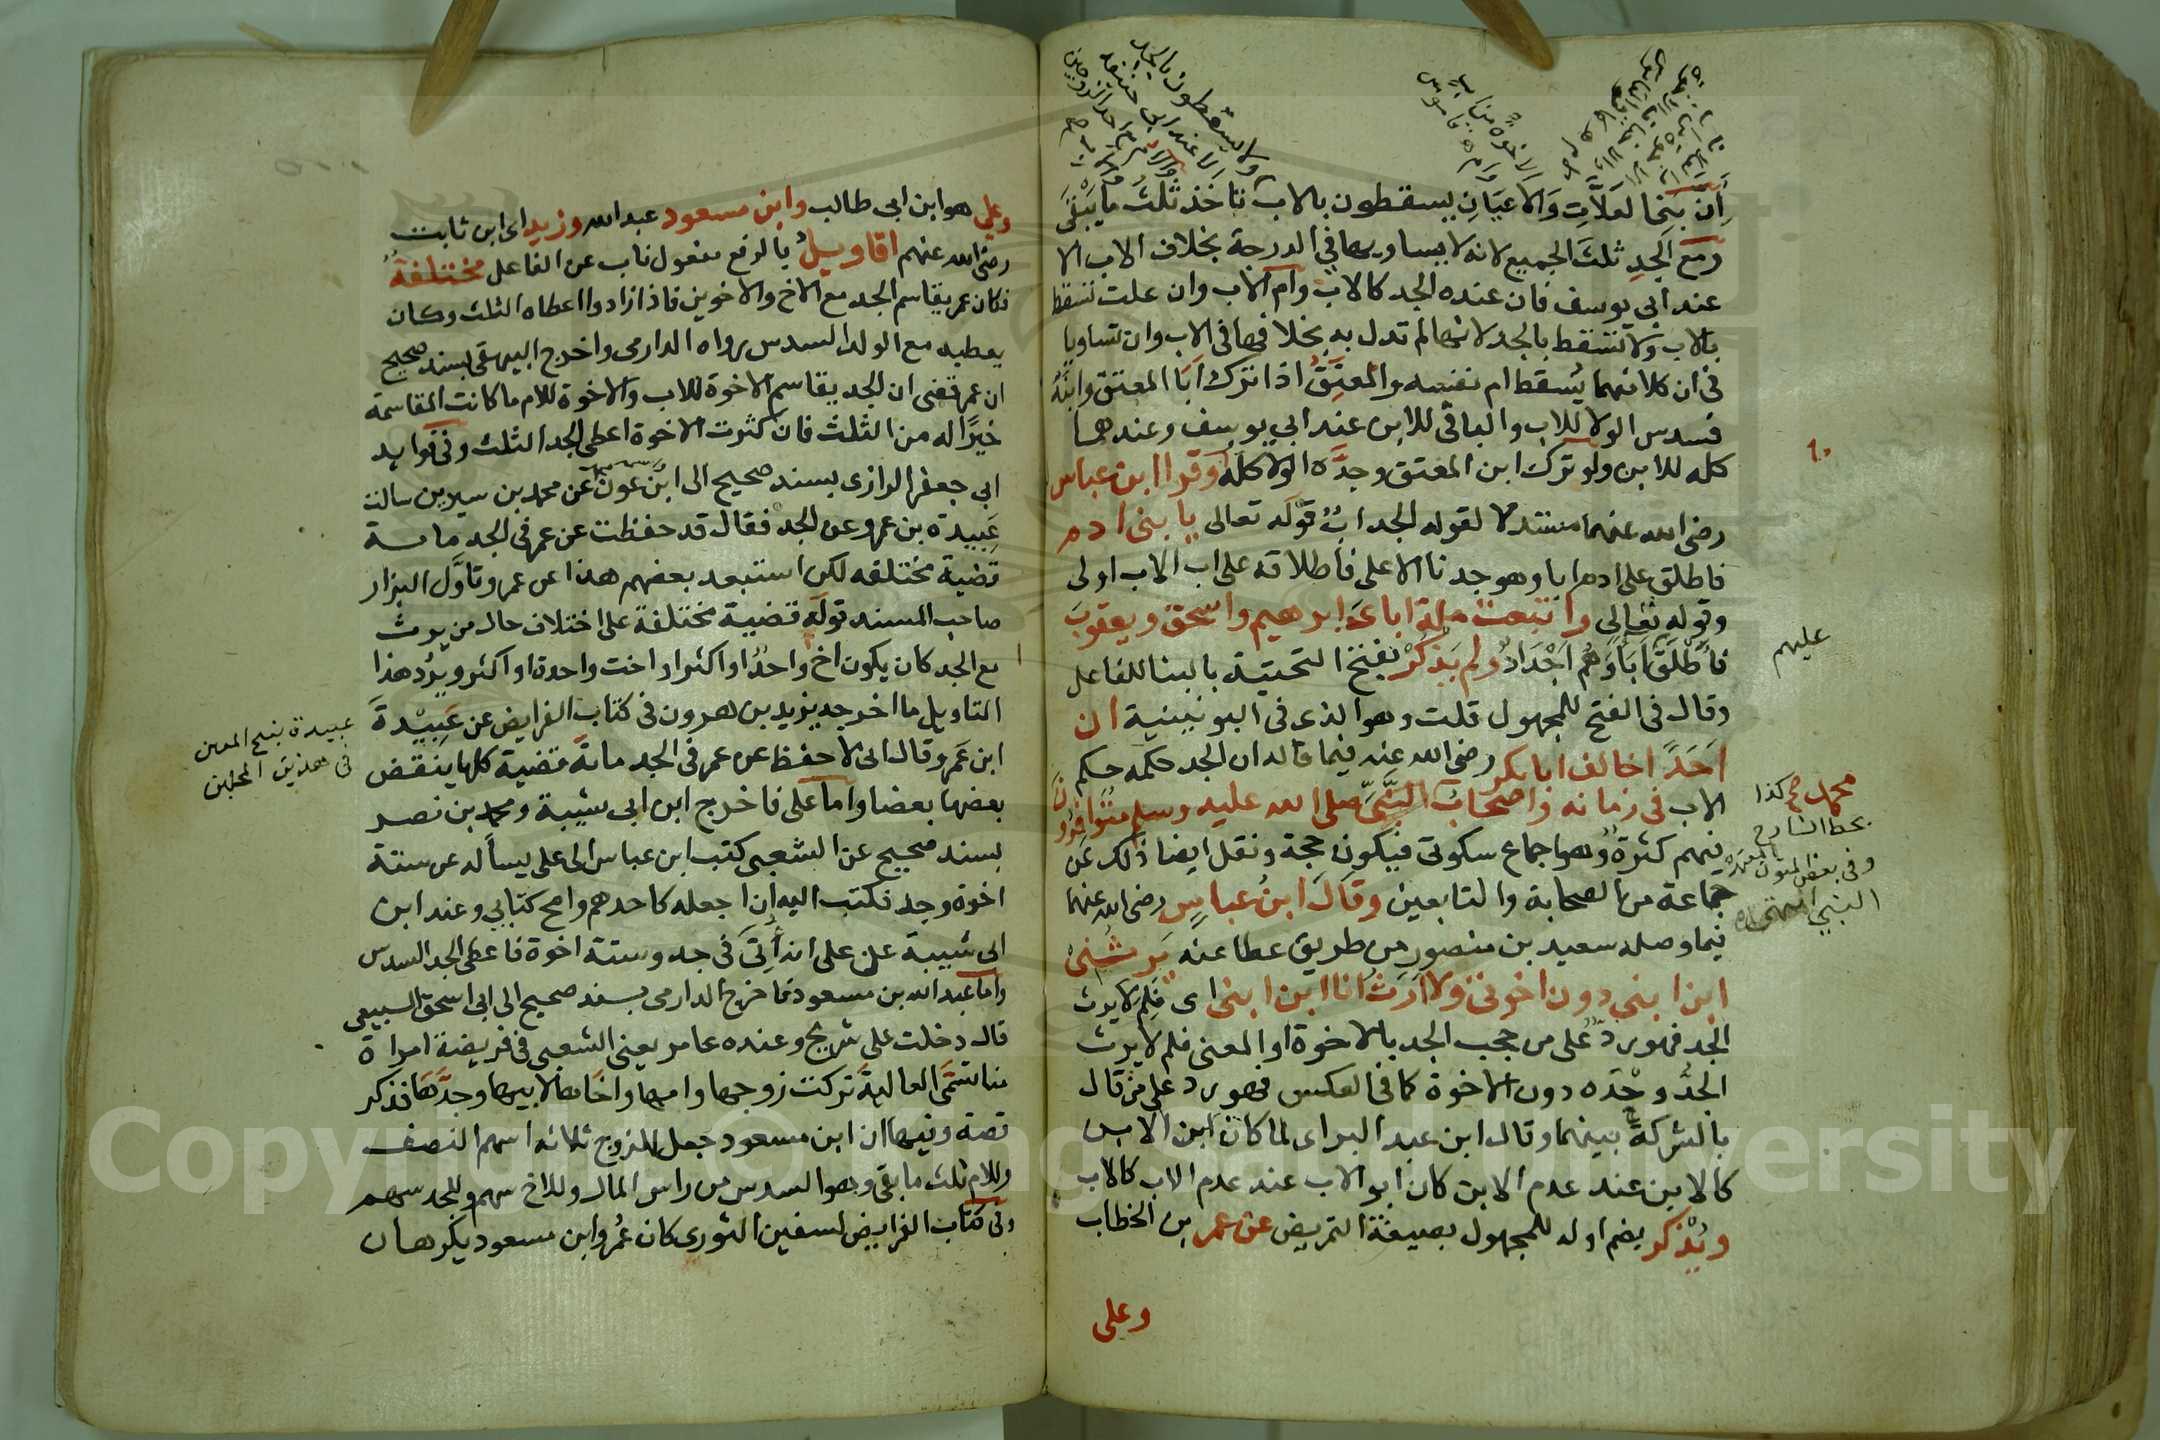 أن بني العلات والاعيان يسقطون بالاب تاخذ ثلث ما يبقى
ومع الجد ثلث الجميع لانه لا يساويها في الدرجة بخلاف الاب الا
عند ابي يوسف فان عنده الجد كالاب وام الاب وان علت تسقط
بالاب ولا تسقط بالجد لانها لم تدل به بخلافها في الاب وان تساويا
في ان كلا منهما يسقط ام نفسه والمعتق اذا ترك ابا المعتق وابنه
فسدس الولا للاب والباقي للابن عند ابي يوسف وعندهما
كله للابن ولو ترك ابن المعتق وجده الولا كله وقرا ابن عباس
رضي الله عنهما مستدلا لقوله الجد اب قوله تعالى يا بني ادم
فاطلق على ادم ابا وهو جدنا الاعلى فاطلاقه على اب الاب اولى
وقوله تعالى واتبعت ملة اباءى ابرهيم واسحق ويعقوب
فاطلق اباوهم اجداد ولم يذكر بفتح التحتية بالبنا للفاعل
وقال في الفتح للمجهول قلت وهو الذي في اليونينية ان
احدا خالف ابا بكر رضي الله عنه فيما قاله ان الجد حكمه حكم
الاب في زمانه واصحاب النبي صلى الله عليه وسلم متوافرون
فيهم كثرة وهو اجماع سكوتي فيكون حجة ونقل ايضا ذلك عن
جماعة من الصحابة والتابعين وقال ابن عباس رضي الله عنهما
فيما وصله سعيد بن منصور من طريق عطا عنه يرثني
ابن ابني دون اخوتي ولا ارث انا ابن ابني اى فلم لا يرث
الجد فهو رد على من حجب الجد بالاخوة او المعنى فلم لا يرث
الجد وحده دون الاخوة كما في العكس فهو رد على من قال
بالشركة بينهما وقال ابن عبد البر اى لما كان ابن الابن
كالابن عند عدم الابن كان ابو الاب عند عدم الاب كالاب
ويذكر بضم اوله للمجهول بصيغة التمريض عن عمر بن الخطاب
وعلى
ولا يسقطون بالجد
الا عند ابي حنيفة
عليهم
محمد صح كذا
بخط الشارح
وفي بعض المتون
النبي
وعلي هو ابن ابي طالب وابن مسعود عبد الله وزيد اى ابن ثابت
رضي الله عنهم اقاويل بالرفع مفعول ناب عن الفاعل مختلفة
فكان عمر يقاسم الجد مع الاخ والاخوين فاذا زادوا اعطاه الثلث وكان
يعطيه مع الولد السدس رواه الدارمى واخرج البيهقي بسند صحيح
ان عمر قضى ان الجد يقاسم الاخوة للاب والاخوة للام ما كانت المقاسمة
خيرا له من الثلث فان كثرت الاخوة اعطى الجد الثلث وفي فوايد
ابي جعفر الرازى بسند صحيح الى ابن عون عن محمد بن سيرين سالت
عبيدة بن عمرو عن الجد فقال قد حفظت عن عمر في الجد ماية
قضية مختلفه لكن استبعد بعضهم هذا عن عمر وتاول البزار
صاحب المسند قوله قضية مختلفة على اختلاف حال من يرث
مع الجد كان يكون اخ واحد او اكثر او اخت واحدة او اكثر ويرد هذا
التاويل ما اخرجه يزيد بن هرون في كتاب الفرايض عن عبيدة
ابن عمرو قال اني لاحفظ عن عمر في الجد مائة قضية كلها ينقض
بعضها بعضا واما على فاخرج ابن ابي شيبة ومحمد بن نصر
بسند صحيح عن الشعبي كتب ابن عباس الى علي يسأله عن ستة
اخوة وجد فكتب اليه ان اجعله كاحدهم وامح كتابي وعند ابن
ابي شيبة عن علي انه أتي في جد وستة اخوة فاعطى الجد السدس
واما عبد الله بن مسعود فاخرج الدارمى بسند صحيح الى ابي اسحق السبيعي
قال دخلت على شريح وعنده عامر يعني الشعبي في فريضة امراة
منا تسمى العالية تركت زوجها وامها واخاها لابيها وجدها فذكر
قصة وفيها ان ابن مسعود جعل للزوج ثلاثة اسهم النصف
وللام ثلث ما بقي وهو السدس من راس المال وللاخ سهم وللجد سهم
وفي كتاب الفرايض لسفين الثورى كان عمر وابن مسعود يكرهان
عبيدة بفتح العين
في هذين المحلين
Copyright © King Saud University